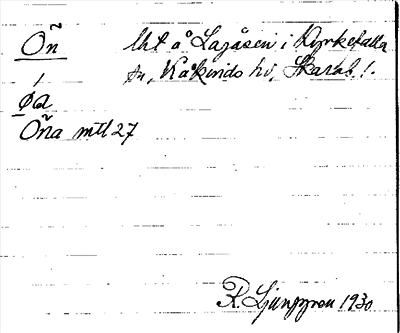 Öñ
Uht å Lagåsen i Kyrkefalla
sn, Kåkinds hd, Skarab. l.
Öña mtl 27
R. Ljunggren 1930